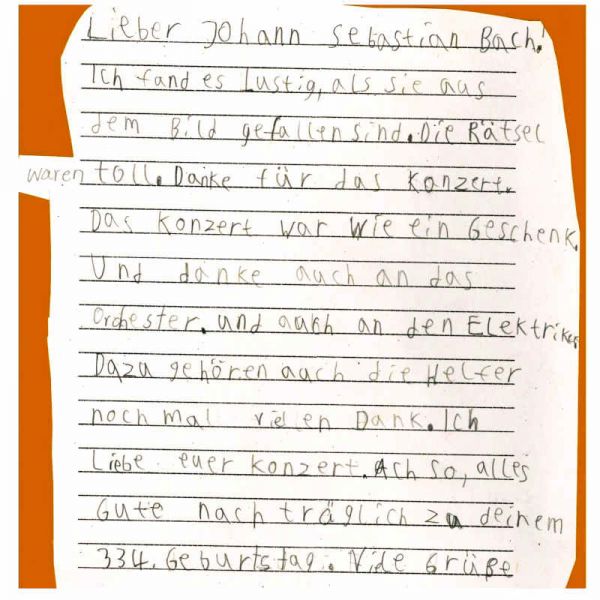 Lieber Johann Sebastian Bach!
Ich fand es lustig, als sie aus
dem Bild gefallen sind. Die Rätsel
waren toll. Danke für das Konzert.
Das Konzert war wie ein Geschenk.
Und danke auch an das
Orchester. und auch an den Elektriker.
Dazu gehören auch die Helfer
noch mal vielen Dank. Ich
Liebe euer Konzert. Ach so, alles
Gute nach träglich zu deinem
334. Geburtstag. Viele Grüße